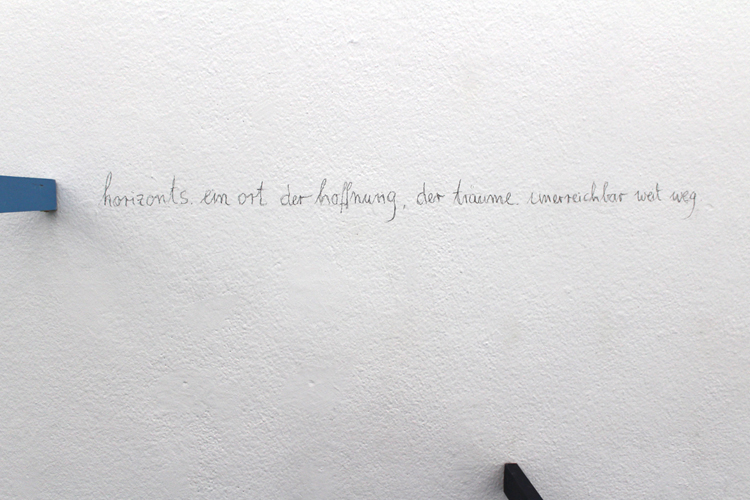 horizonts. ein ort der hoffnung, der träume. unerreichbar weit weg